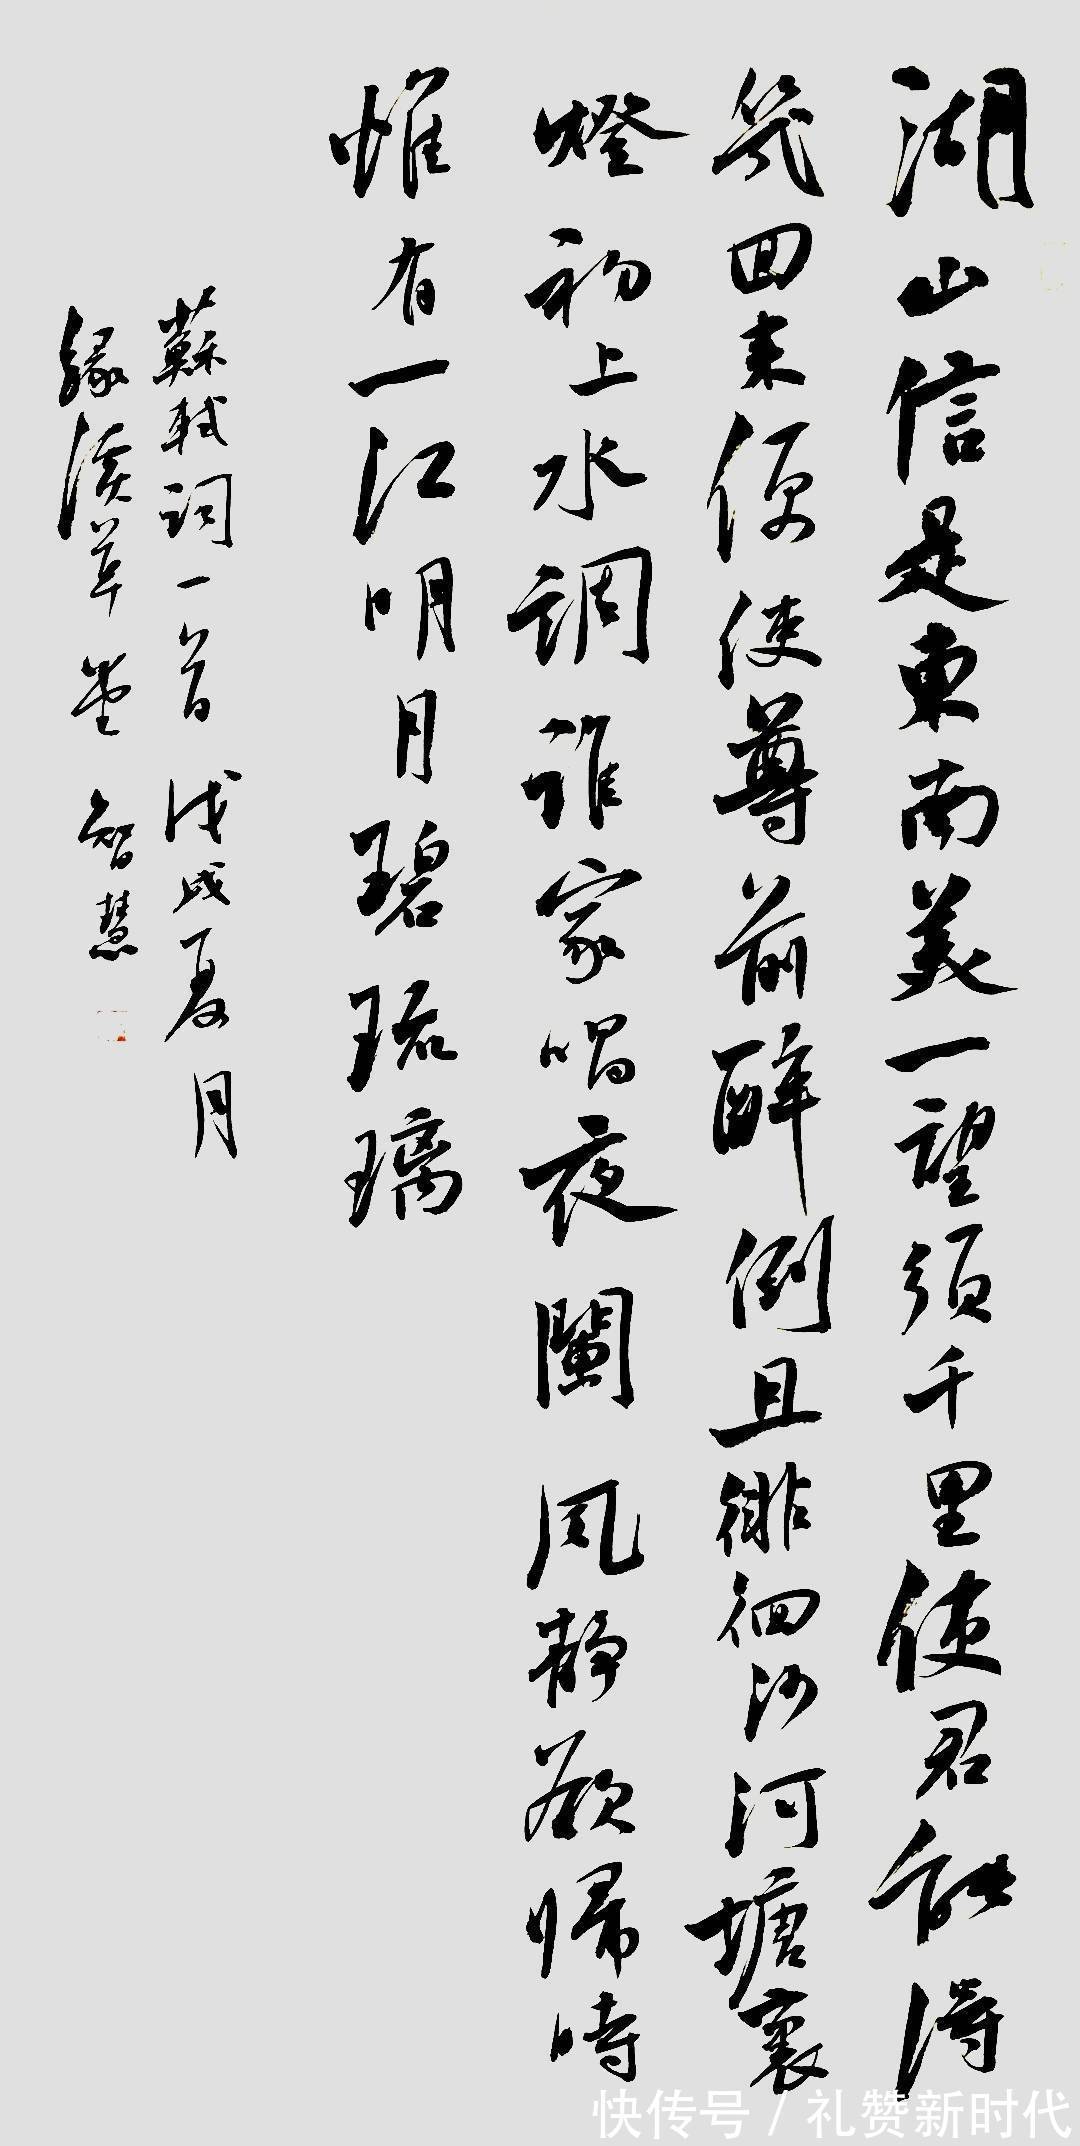 湖山信是東南美一望須千里使君能得
幾回来便使尊前醉倒且徘徊沙河塘裏
燈初上水調誰家唱夜闌風靜欲歸時
惟有一江明月碧琉璃
蘇軾詞一首 戊戌夏月
緣溪草堂 智慧
快传号 / 礼赞新时代